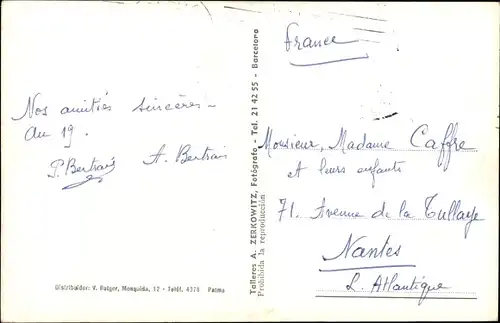 Nos amitiés sincères -
Au 19.
P. Bertrais A. Bertrais
Distribuidor: V. Rotger, Mosquida, 12 - Teléf. 4378 Palma
Talleres A. ZERKOWITZ, Fotógrafo - Tel. 21 42 55 - Barcelona
Prohibida la reproducción
France
Monsieur, Madame Caffre
et leurs enfants
71. Avenue de la Tullaye
Nantes
L. Atlantique